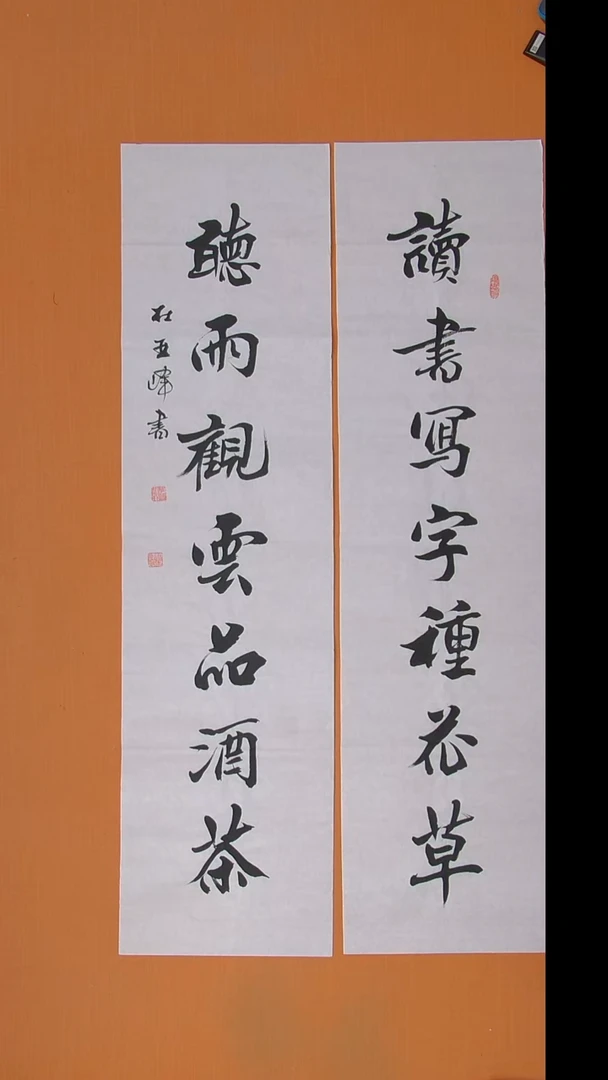 讀書寫字種花草
聽雨觀雲品酒茶
杜亚峰書